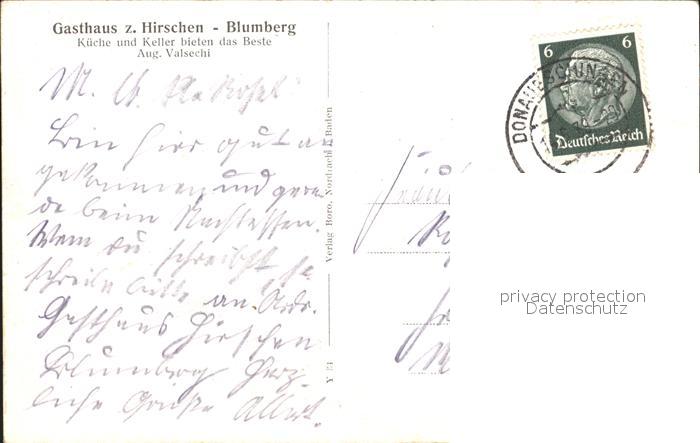 Gasthaus z. Hirschen - Blumberg
Küche und Keller bieten das Beste
Aug. Valsechi
M. lb.
Bin hier gut an
gekommen und gera
de beim Nachtessen.
Wenn du schreibst so
schreibe bitte an Adr.
Gasthaus Hirschen
Blumberg Herz-
liche Grüße Albert.
Verlag Boro, Nordrach i. Baden
6 6
Deutsches Reich
DONAUESCHINGEN
privacy protection
Datenschutz